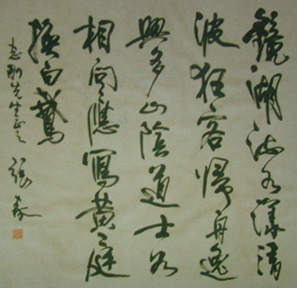 鏡湖流水漾清
波狂客歸舟逸
興多山陰道士如
相見應寫黃庭
換白鵞
志剛先生正之
張森